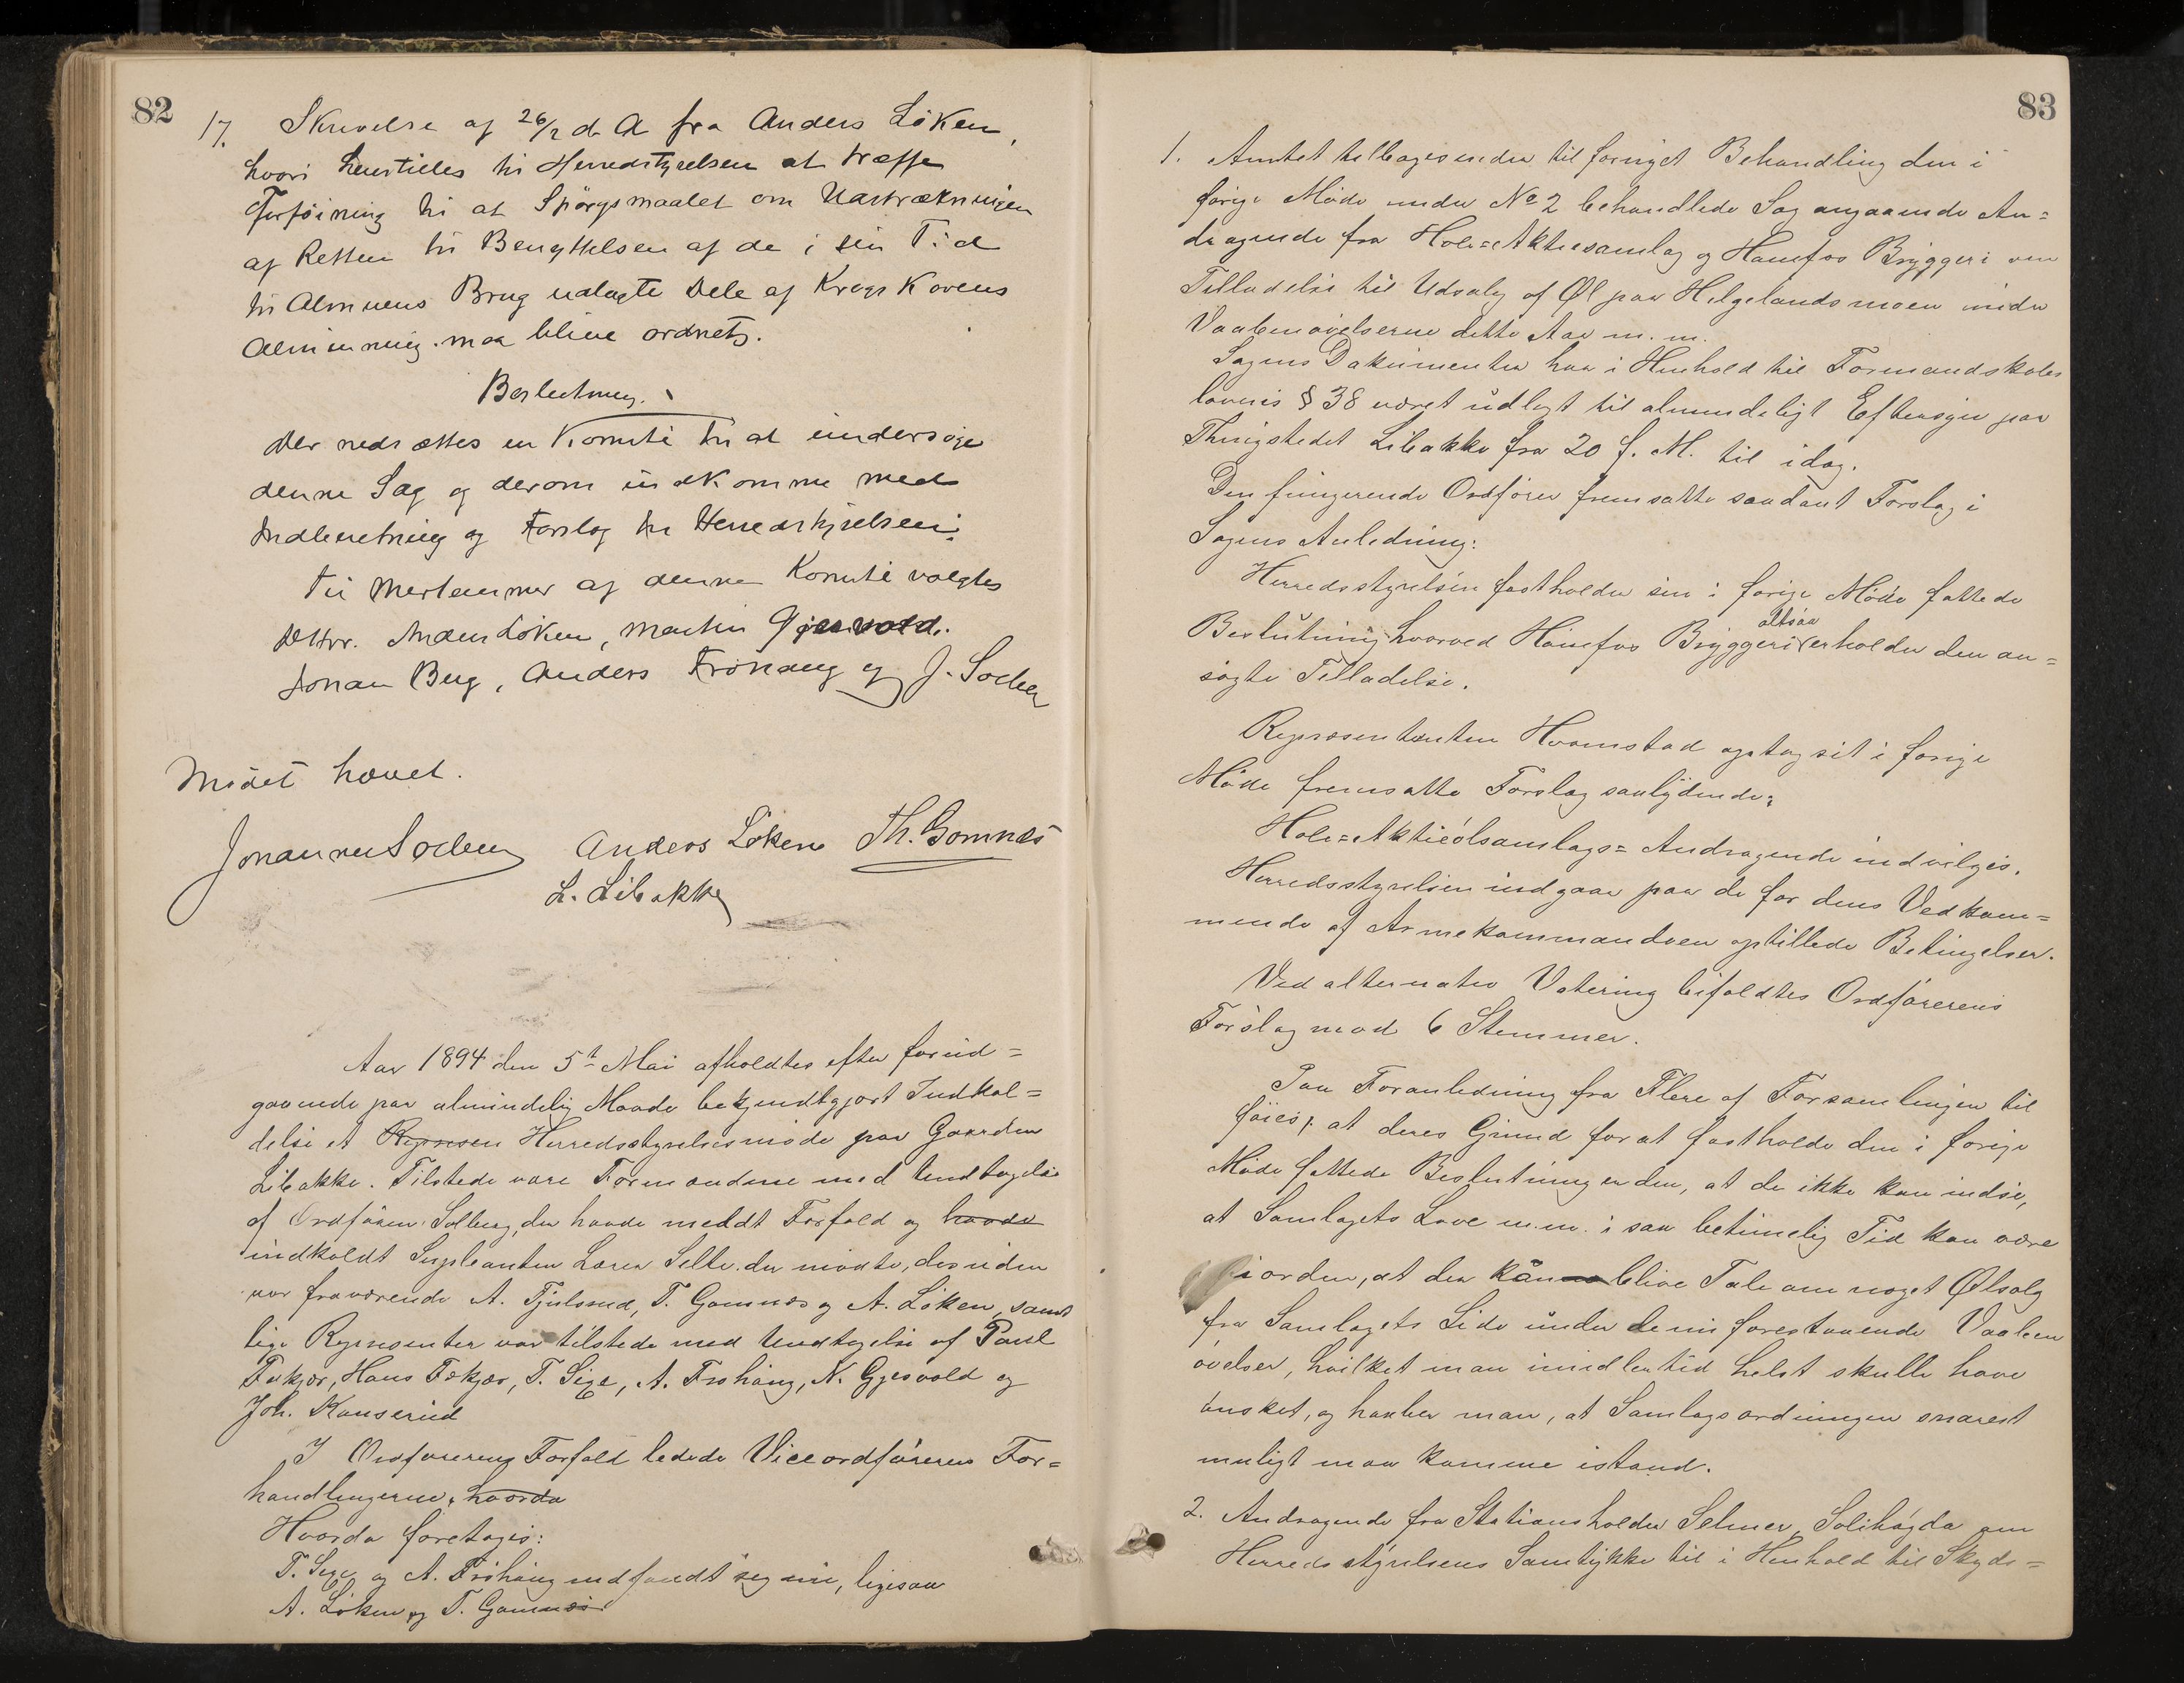 82
17. Skrivelse af 26/2 d. A fra Anders Löken,
hvori henstilles til Herredstyrelsen at træffe
Forföining til at Spörgsmaalet om Udstrækningen
af Retten til Benyttelsen af de i sin Tid
til Almuens Brug udlagte Dele af Krogskovens
Alminning maa blive ordnet.
Beslutning.
Der nedsættes en Komité til at undersöge
denne Sag og derom indkomme med
Indberetning og Forslag til Herredstyrelsen.
Til Medlemmer af denne Komité valgtes
DHrr. Anders Löken, Martin Gjesvold.
Johan Berg, Anders Fröhaug og J. Solberg
Mödet hævet.
Johannes Solberg Anders Löken Th. Gomnæs
L. Libakke
Aar 1894 den 5te Mai afholdtes efter forud=
gaaende paa almindelig Maade bekjendtgjort Indkal=
delse et Repræsen Herredsstyrelsesmöde paa Gaarden
Libakke. Tilstede vare Formændene med Undtagelse
af Ordfören Solberg, der havde meldt Forfald og havde
indkaldt Supleanten Lærer Selte der mödte, desuden
var fraværende A. Fjulsrud, T. Gomnæs og A. Löken, samt
lige Repræsenter var tilstede med Undtagelse af Paul
Fekjær, Hans Fekjær, T. Sege, A. Frohaug, N. Gjesvold og
Joh. Kauserud
I Ordförerens Forfald ledede Viceordföreren For=
handlingerne. hvorda
Hvorda foretoges:
T. Sege og A. Fröhaug indfandt sig nu, ligesaa
A. Löken og T. Gomnæs
83
1. Amtet tilbagesender til fornyet Behandling den i
forige Möde under No 2 behandlede Sag angaaende An=
dragende fra Hole=Aktiesamlag og Hönefos Bryggeri om
Tilladelse til Udsalg af Øl paa Helgelandsmoen under
Vaabenövelserne dette Aar m. m.
Sagens Dokumenter har i Henhold til Formandskabs
lovens § 38 været udlagt til almindeligt Eftersyn paa
Thingstedet Libakke fra 20 f. M. til idag.
Den fungerende Ordförer fremsatte saadant Forslag i
Sagens Anledning:
Herredsstyrelsen fastholder sin i forige Möde fattede
altsaa
Beslutning hvorved Hönefos Bryggeri erholder den an=
sögte Tilladelse.
Repræsentanten Hvamstad optog sit i forige
Möde fremsatte Forslag saalydende:
Hole=Aktieölsamlags= Andragende indvilges.
Herredsstyrelsen indgaar paa de for dens Vedkom=
mende af Armekommandoen opstillede Betingelser.
Ved alternativ Votering bifaldtes Ordförerens
Forslag mod 6 Stemmer.
Paa Foranledning fra Flere af Forsamlingen til
föies, at deres Grund for at fastholde den i forige
Möde fattede Beslutning er den, at de ikke kan indse,
at Samlagets Love m.m. i saa betimelig Tid kan være
i orden, at der kan blive Tale om noget Ølsalg
fra Samlagets Side under de nu forestaaende Vaaben
övelser, hvilket man imidlertid helst skulle have
önsket, og haaber man, at Samlagsordningen snarest
muligt maa komme istand.
2. Andragende fra Stationsholder Selmer, Solihögda om
Herredsstyrelsens Samtykke til i Henhold til Skyds=